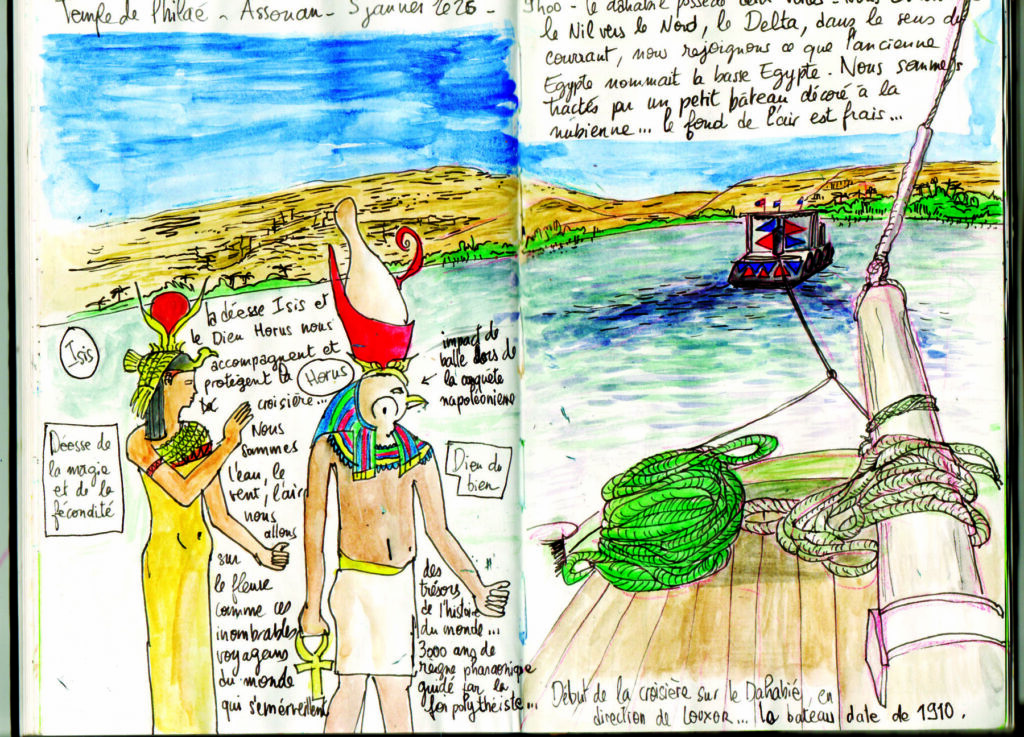 Temple de Philaé - Assouan - 5 janvier 2026 -
la déesse Isis et
le Dieu Horus nous
accompagnent et
protègent la
croisière...
Nous
sommes
l'eau, le
vent, l'air
nous
allons
sur
le fleuve
comme ces
inombrables
voyageurs
du monde
qui s'émerveillent
des
trésors
de l'histoire
du monde...
3000 ans de
reigne pharaonique
guidé par la
foi polythéiste...
Isis
Horus
impact de
balle lors de
la conquête
napoléonienne
Déesse de
la magie
et de la
fécondité
Dieu du
bien
9h00 - le dahabié possède deux voiles -
le Nil vers le Nord, le Delta, dans le sens du
courrant, nous rejoignons ce que l'ancienne
Egypte nommait la basse Egypte. Nous sommes
tractés par un petit bateau décoré à la
nubienne... le fond de l'air est frais...
Début de la croisière sur le Dahabié, en
direction de LOUXOR... le bateau date de 1910.